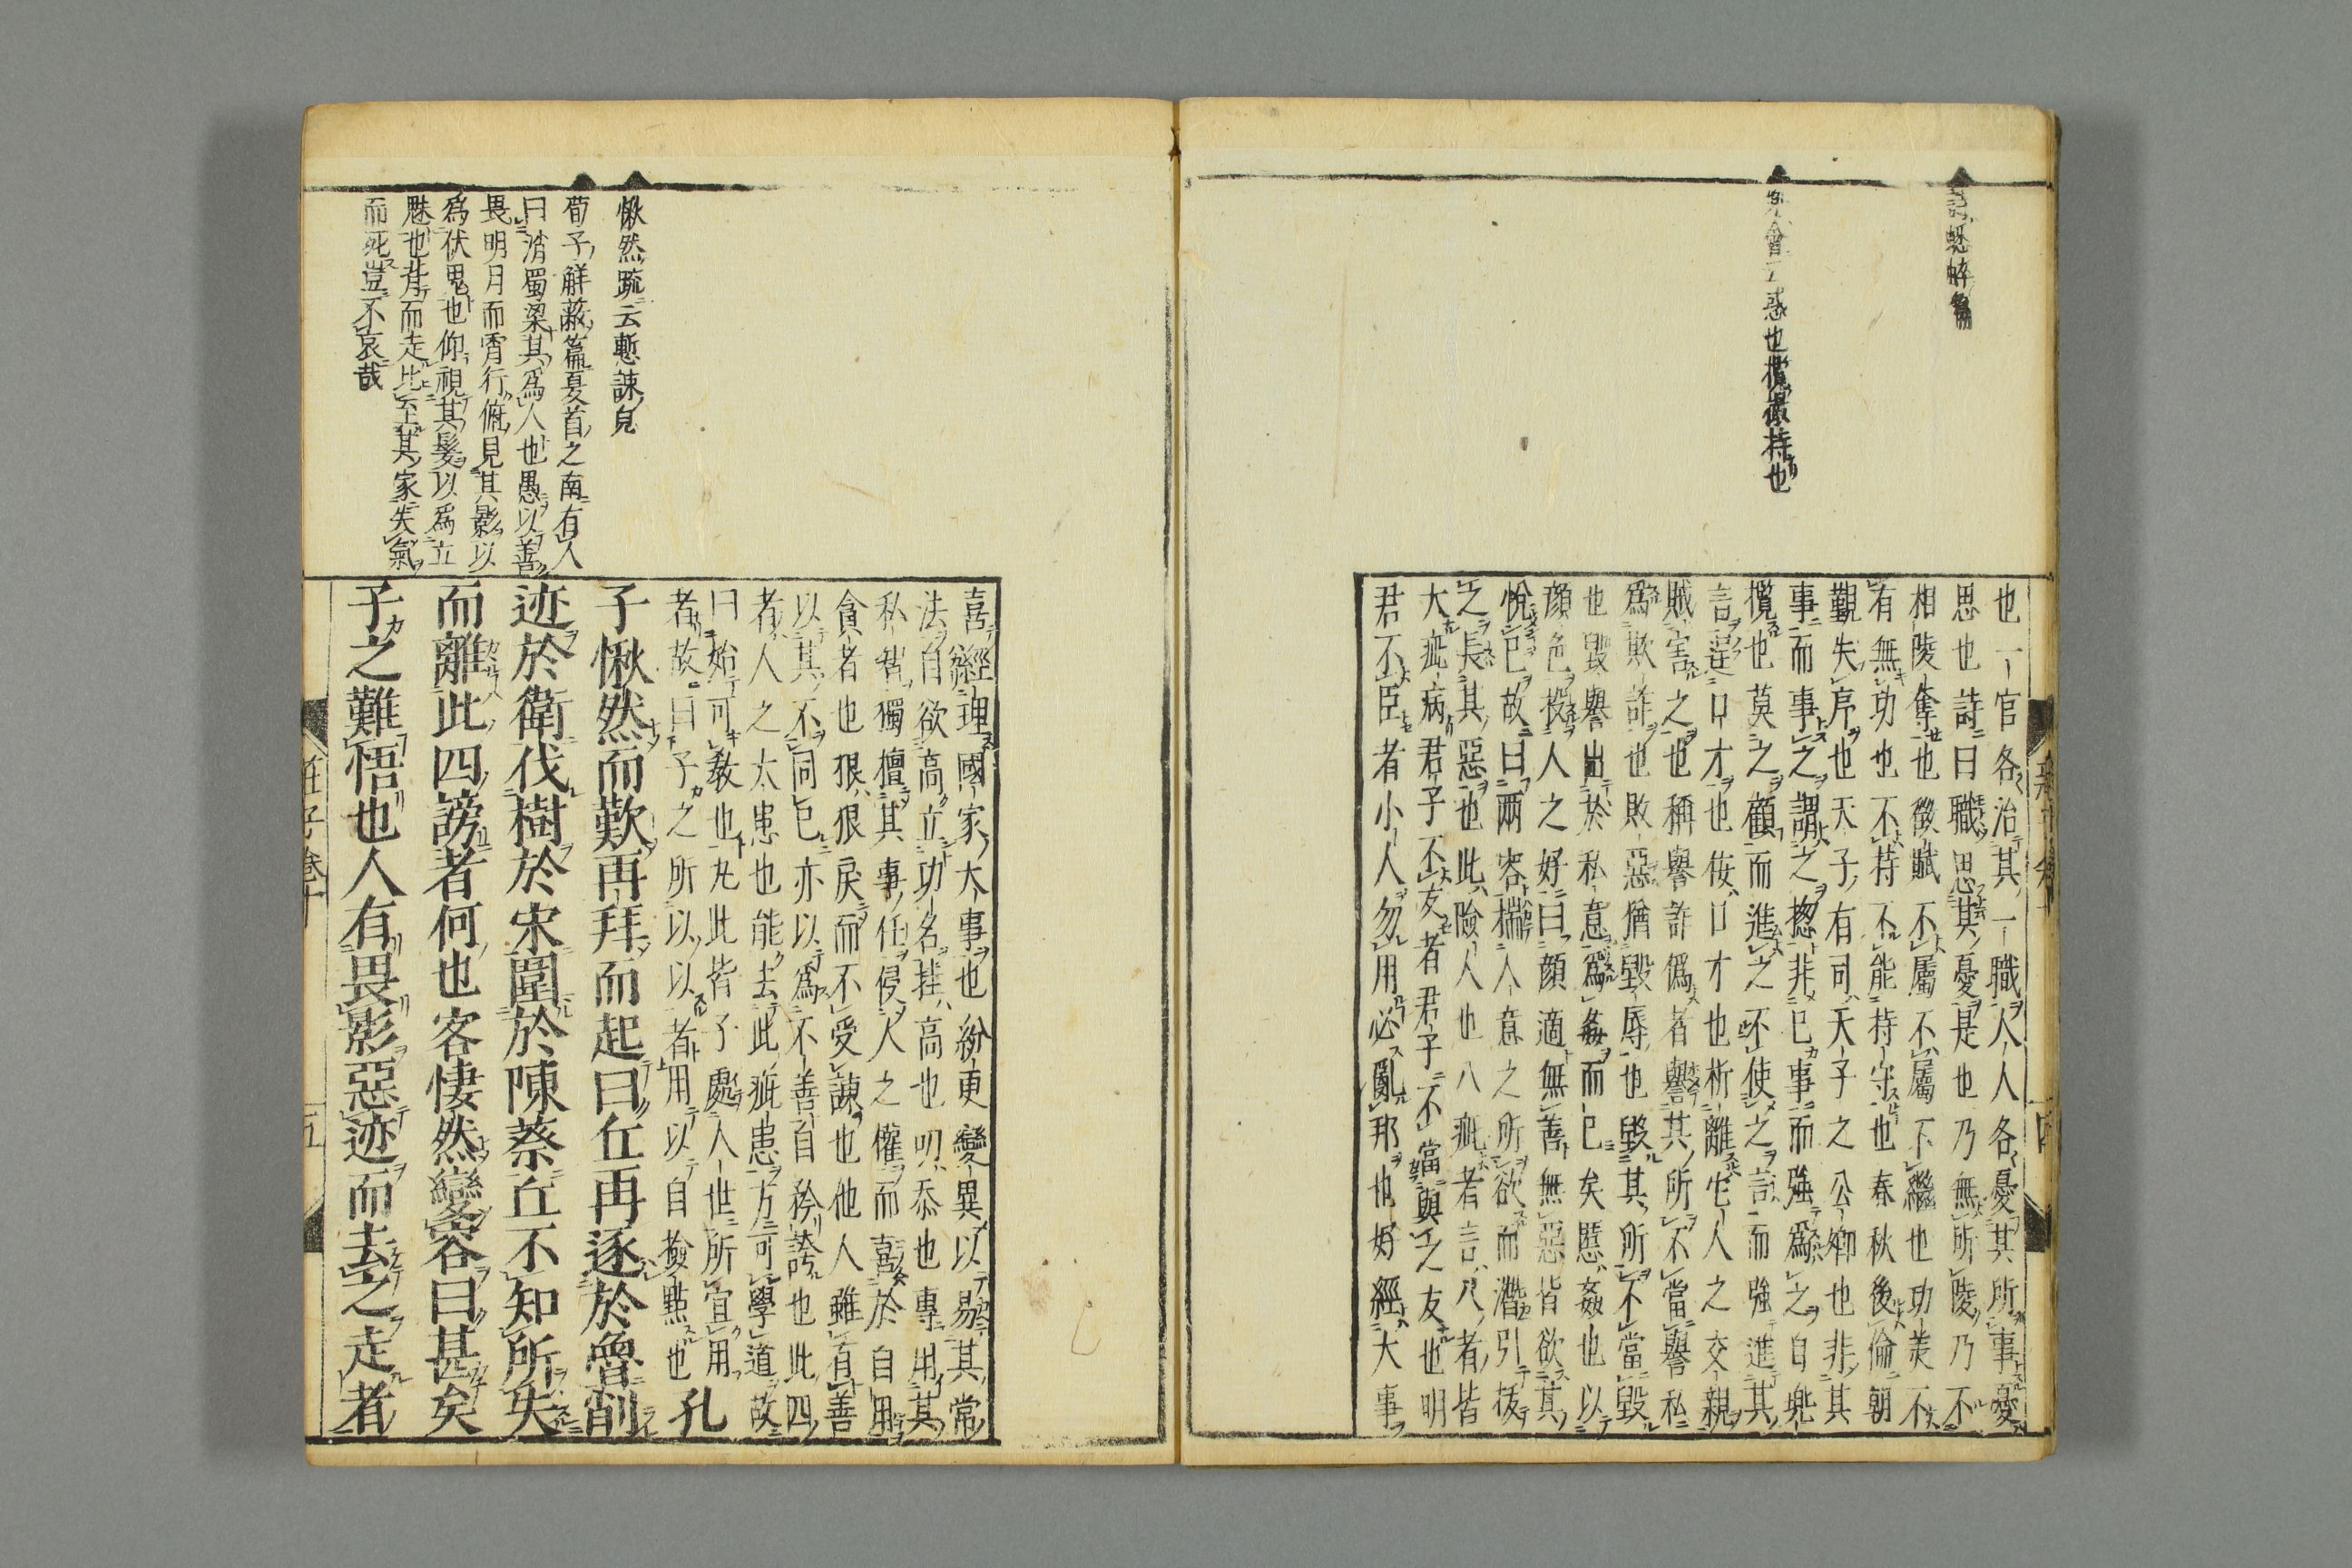 也一官各治其一職人人各憂其所事憂
思也詩曰職思其憂是也乃無所陵乃不
相陵奪也徵賦不屬不屬不繼也功美不
有無功也不持不能持守也春秋後倫朝
覲失序也天子有司天子之公卿也非其
事而事之謂之摠非已事而強爲之自兜
攬也莫之顧而進之不使之言而強進其
言逞口才也佞口才也析離它人之交親
賊害之也稱譽詐僞者譽其所不當譽私
爲欺詐也敗惡猶毀辱也毀其所不當毀
也毀譽出於私意爲姦而已矣慝姦也以
顏色投人之好曰顏適無善無惡皆欲其
悅已故曰兩容揣人意之所欲而潛引拔
之長其惡也此險人也八疵者言八者皆
大疵病君子不友者君子不當與之友也明
君不臣者小人勿用必亂邦也好經大事
喜經理國家大事也紛更變異以易其常
法自欲高立功名挂高也叨忝也專用其
私智獨擅其事任侵人之權而喜於自用
貪者也狠狠戾而不受諫也他人雖有善
以其不同已亦以爲不善自矜誇也此四
者人之大患也能去此疵患方可學道故
曰始可教也凡此皆子處人世所宜用
者故曰子之所以以者用以自撿點也孔
子愀然而歎再拜而起曰丘再逐於魯削
迹於衛伐樹於宋圍於陳蔡丘不知所失
而離此四謗者何也客悽然變容曰甚矣
子之難悟也人有畏影惡迹而去之走者
愀然疏云慙諫皃
荀子解蔽篇夏首之南有人
曰涓蜀梁其爲人也愚以善
畏明月而宵行俯見其影以
爲伏鬼也仰視其髮以爲立
魅也背而走比至其家失氣
而死豈不哀哉